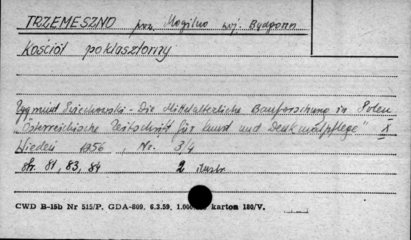 TRZEMESZNO pow. Mogilno woj. Bydgoszcz
Kościół poklasztorny
Zygmund Świechowski - Die Mittelalterliche Bauforschung in Polen
"Österreichische Zeitschrift für Kunst und Denkmalpflege" X
Wiedeń 1956, Nr. 3/4
str. 81, 83, 84 2 ilustr.
CWD B-15b Nr 515/P. GDA-809. 6.3.59. 1.000 karton 180/V.